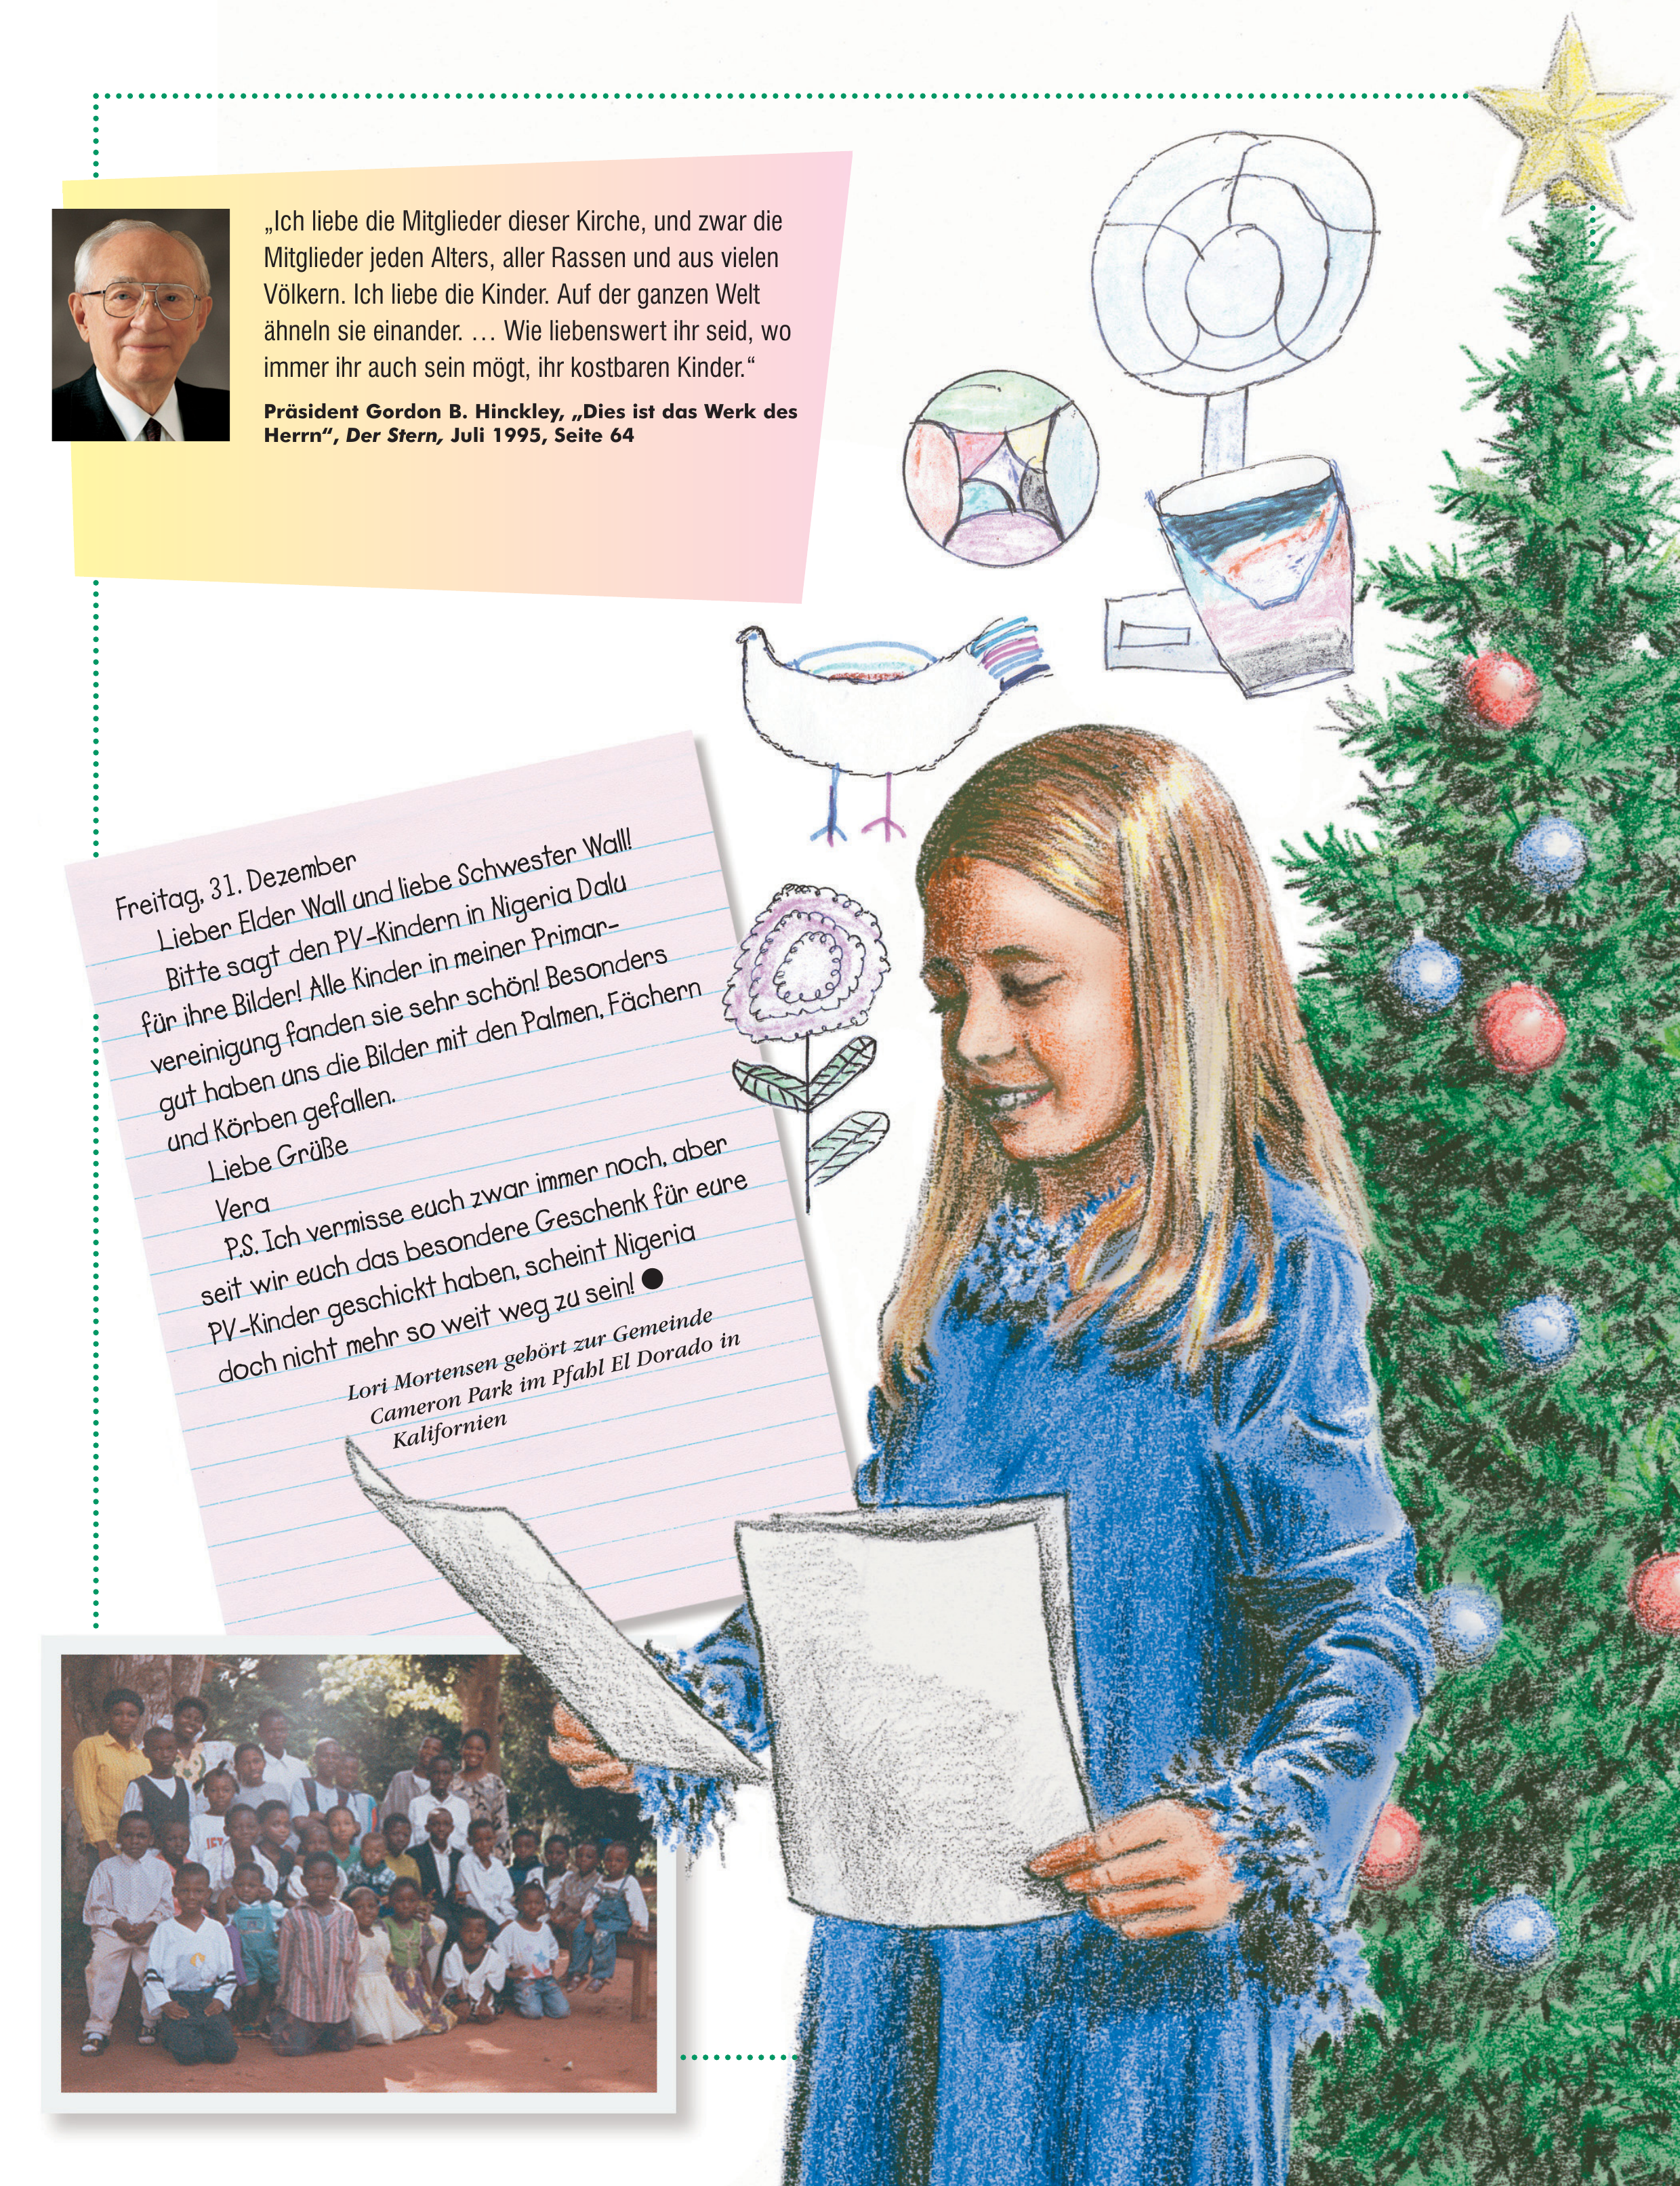 „Ich liebe die Mitglieder dieser Kirche, und zwar die
Mitglieder jeden Alters, aller Rassen und aus vielen
Völkern. Ich liebe die Kinder. Auf der ganzen Welt
ähneln sie einander. … Wie liebenswert ihr seid, wo
immer ihr auch sein mögt, ihr kostbaren Kinder.“
Präsident Gordon B. Hinckley, „Dies ist das Werk des
Herrn“, Der Stern, Juli 1995, Seite 64
Freitag, 31. Dezember
Lieber Elder Wall und liebe Schwester Wall!
Bitte sagt den PV-Kindern in Nigeria Dalu
für ihre Bilder! Alle Kinder in meiner Primar-
vereinigung fanden sie sehr schön! Besonders
gut haben uns die Bilder mit den Palmen, Fächern
und Körben gefallen.
Liebe Grüße
Vera
P.S. Ich vermisse euch zwar immer noch, aber
seit wir euch das besondere Geschenk für eure
PV-Kinder geschickt haben, scheint Nigeria
doch nicht mehr so weit weg zu sein! ●
Lori Mortensen gehört zur Gemeinde
Cameron Park im Pfahl El Dorado in
Kalifornien